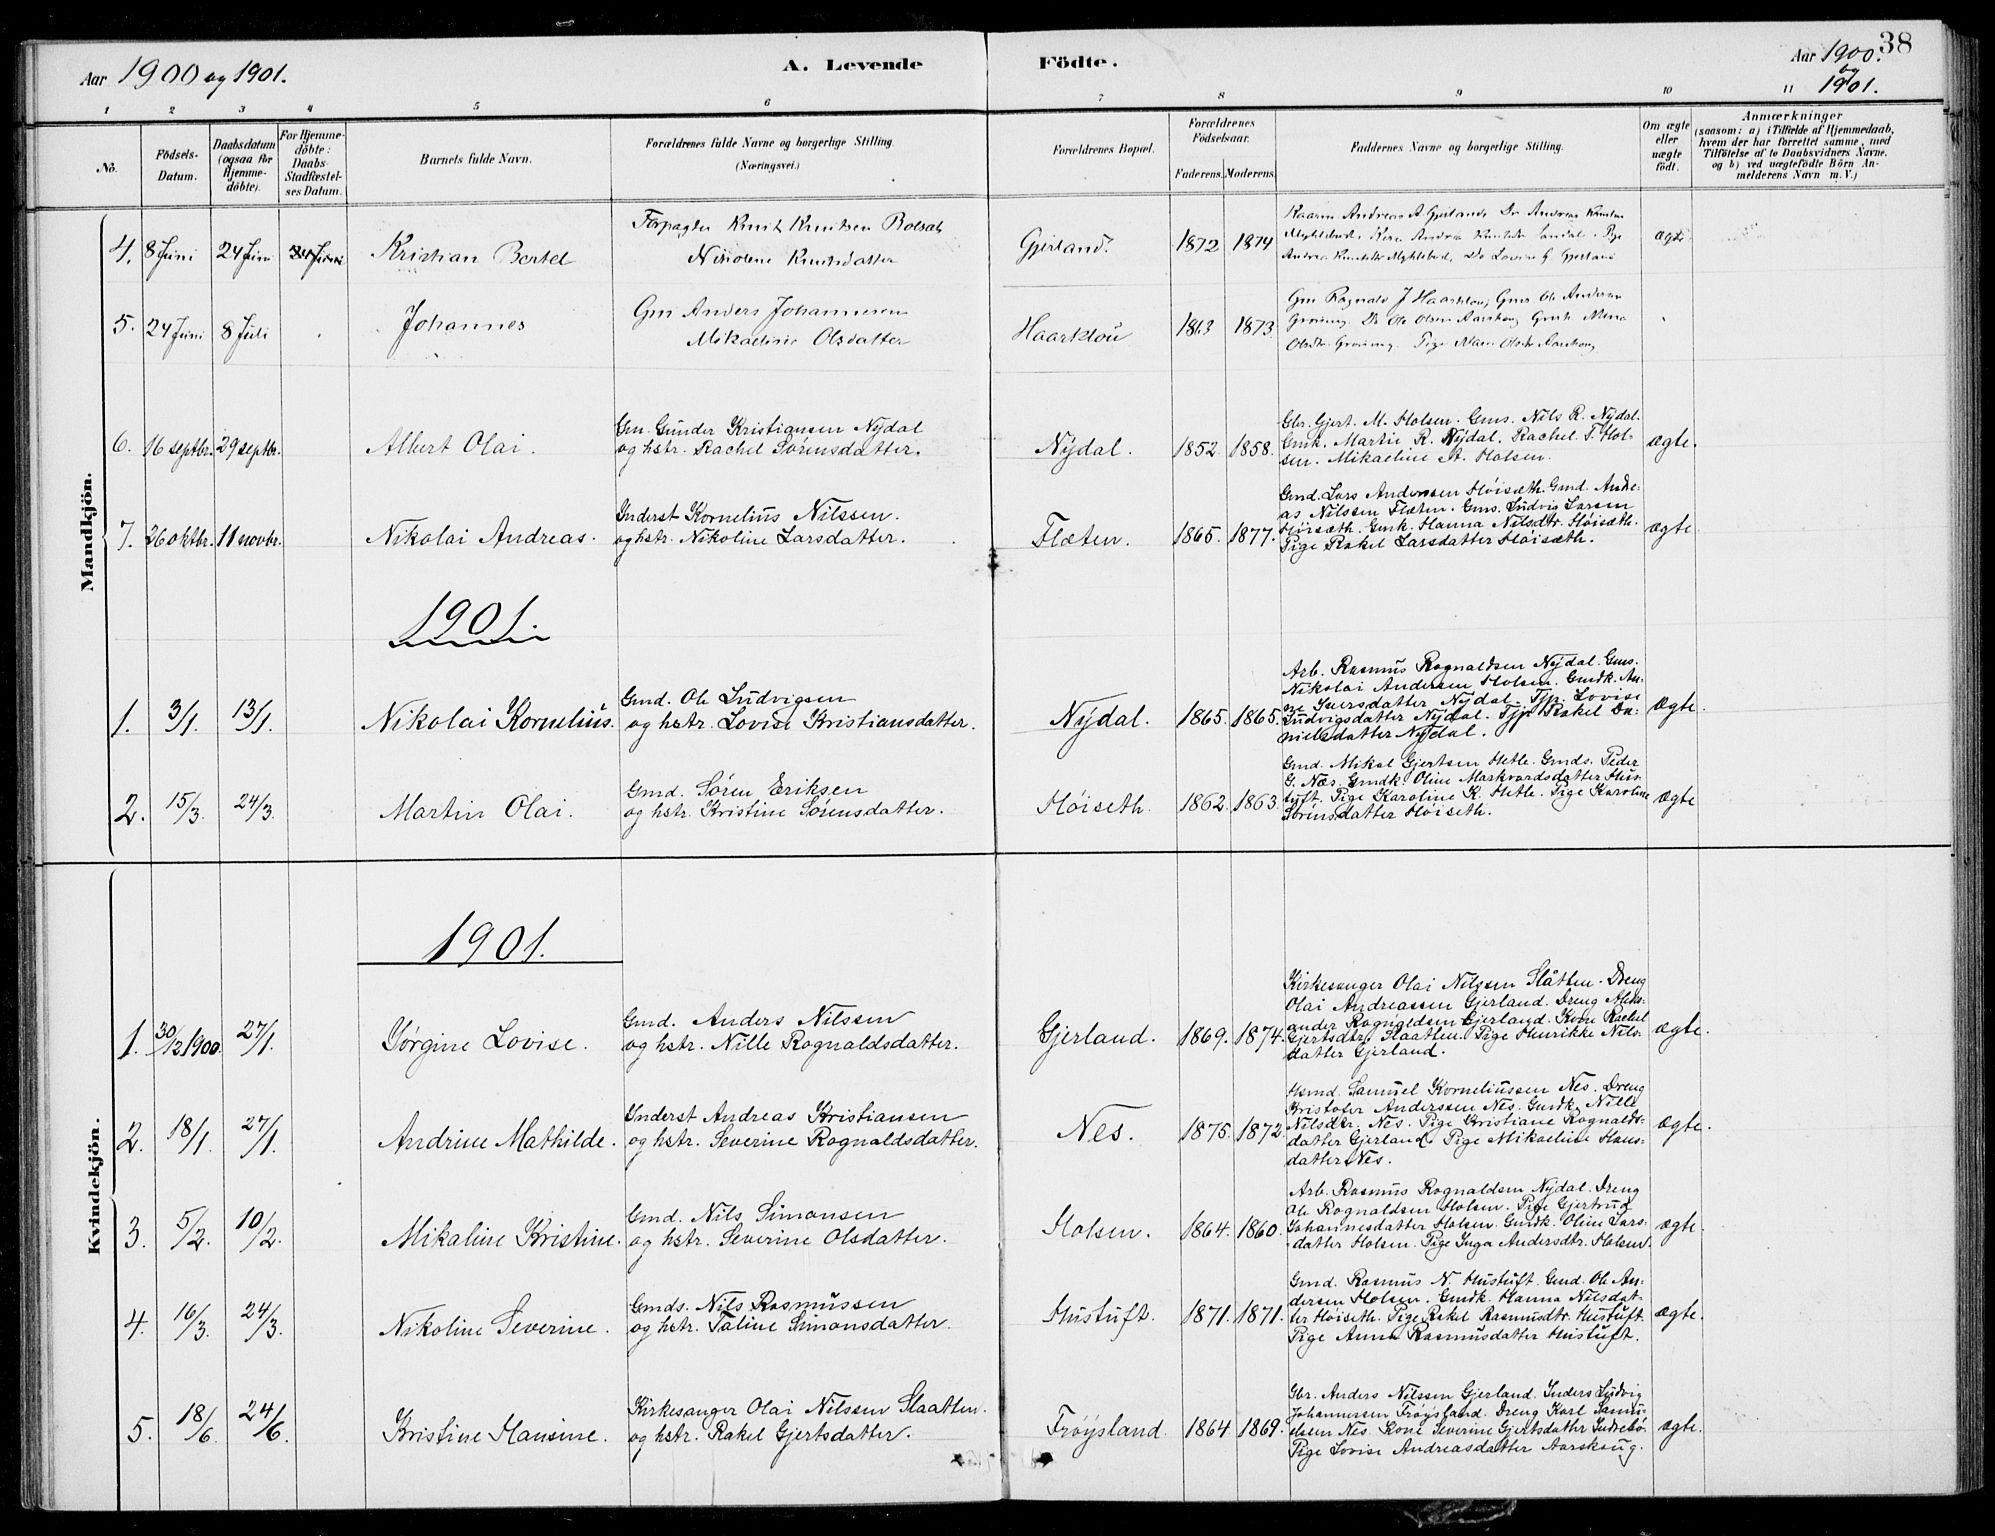 38
Aar 1900 og 1901.
A. Levende Födte.
Aar 1900. og 1901.
1 2 3 4 5 6 7 8 9 10 11
No.
Födsels-Datum.
Daabsdatum (ogsaa for Hjemmedöbte).
For Hjemmedöbte: Daabs-Stadfæstelses Datum.
Barnets fulde Navn.
Forældrenes fulde Navne og borgerlige Stilling. (Næringsvei.)
Forældrenes Bopæl.
Forældrenes Födselsaar.
Faderens. Moderens.
Faddernes Navne og borgerlige Stilling.
Om ægte eller uægte födt.
Anmærkninger
(saasom: a) i Tilfælde af Hjemmedaab, hvem der har forrettet samme, med Tilföielse af to Daabsvidners Navne. og b) ved uægtefödte Börn Anmelderens Navn m. V.)
Mandkjön.
4. 8 Juni 24 Juni 24 Juni Kristian Bertel
Forpagter Knut Knutsen Bolsat
Nikoline Knutsdatter
Gjerland. 1872 1874
Andreas A Gjerland
ægte
5. 24 Juni 8 Juli Johannes
Gm Anders Johannesen
Mikaeline Olsdatter
Haarklou 1863 1873
Gm Ragnald J Haarklou Gms Ole Andersen
Grøning Dr Ole Olsen Aarskog Gmk
Olsdtr Grøning. Pige Olsdtr Aarskog
6. 16 septbr. 29 septbr. Albert Olai.
Gm. Gunder Kristiansen Nydal
og hstr. Rachel Sørensdatter.
Nydal. 1852. 1858.
Gbr. Gjert. M. Holsen. Gms. Nils R. Nydal.
Gmk. Martin R. Nydal. Rachel T. Hol-
sen. Mikaeline A. Holsen.
ægte.
7. 26 oktbr. 11 novbr. Nikolai Andreas.
Inderst Kornelius Nilssen.
og hstr. Nikoline Larsdatter.
Flæten. 1865. 1877.
Gmd. Lars Anderssen Høisæth. Gmd. Andre-
as Nilssen Flæten. Gms. Ludvig Larsen
Høisæth. Gmk. Hanna Nilsdtr. Høisæth.
Pige Rakel Larsdatter Høisæth.
ægte
1901.
1. 3/1 13/1. Nikolai Kornelius.
Gmd. Ole Ludvigsen
og hstr. Lovise Kristiansdatter.
Nydal. 1865. 1865.
Arb. Rasmus Rognaldsen Nydal. Gms.
Nikolai Andersen Holsen. Gmdk. An-
ne Iversdatter Nydal. Tjp. Lovise
Ludvigsdatter Nydal. Tjp. Rakel Da-
nielsdatter Nydal.
ægte.
2. 15/3. 24/3. Martin Olai.
Gmd. Sören Eriksen
og hstr. Kristine Sörensdatter.
Høiseth. 1862. 1863.
Gmd. Mikal Gjertsen Hetle. Gmds. Peder
G. Næs. Gmdk. Oline Markvardsdatter Hus-
tuft. Pige Karoline K. Hetle. Pige Karoline
Sörensdatter Høiseth.
ægte
Kvindekjön.
1901.
1. 30/12 1900. 27/1. Jörgine Lovise.
Gmd. Anders Nilssen
og hstr. Nille Rognaldsdatter.
Gjerland. 1869. 1874.
Kirkesanger Olai Nilssen Slåtten. Dreng
Olai Andreassen Gjerland. Dreng Aleks-
ander Rognaldsen Gjerland. Kone Rachel
Gjertsdtr. Slaatten. Pige Henrikke Nils-
datter Gjerland.
ægte.
2. 18/1. 27/1. Andrine Mathilde.
Inderst Andreas Kristiansen
og hstr. Severine Rognaldsdatter.
Nes. 1875. 1872.
Hsmd. Samuel Korneliussen Nes. Dreng
Kristofer Anderssen Nes. Gmdk. Nille
Nilsdtr. Nes. Pige Kristiane Rognalds-
datter Gjerland. Pige Mikaeline Hans-
datter Nes.
ægte.
3. 5/2. 10/2. Mikaline Kristine.
Gmd. Nils Simonsen
og hstr. Severine Olsdatter.
Holsen. 1864. 1860.
Arb. Rasmus Rognaldsen Nydal. Dreng
Ole Rognaldsen Holsen. Pige Gjertrud
Johannesdatter Holsen. Gmdk. Oline Lars-
datter Holsen. Pige Inga Andersdtr. Holsen.
ægte.
4. 16/3. 24/3. Nikoline Severine.
Gmds. Nils Rasmussen
og hstr. Taline Simonsdatter.
Hustuft. 1871. 1871.
Gmd. Rasmus N. Hustuft. Gmd. Ole An-
dersen Holsen. Gmdk. Hanna Nilsdat-
ter Høiseth. Pige Rakel Rasmusdtr. Hustuft.
Pige Anna Rasmusdatter Hustuft.
ægte.
5. 18/6. 24/6. Kristine Hansine.
Kirkesanger Olai Nilssen Slaatten.
og hstr. Rakel Gjertsdatter.
Fröysland. 1864. 1869.
Gbr. Anders Nilssen Gjerland. Inders. Ludvig
Johannessen Fröysland. Dreng Karl Samu-
elsen Nes. Kone Severine Gjertsdatter Indrebö.
Pige Lovise Andreasdatter Aarskoug.
ægte.